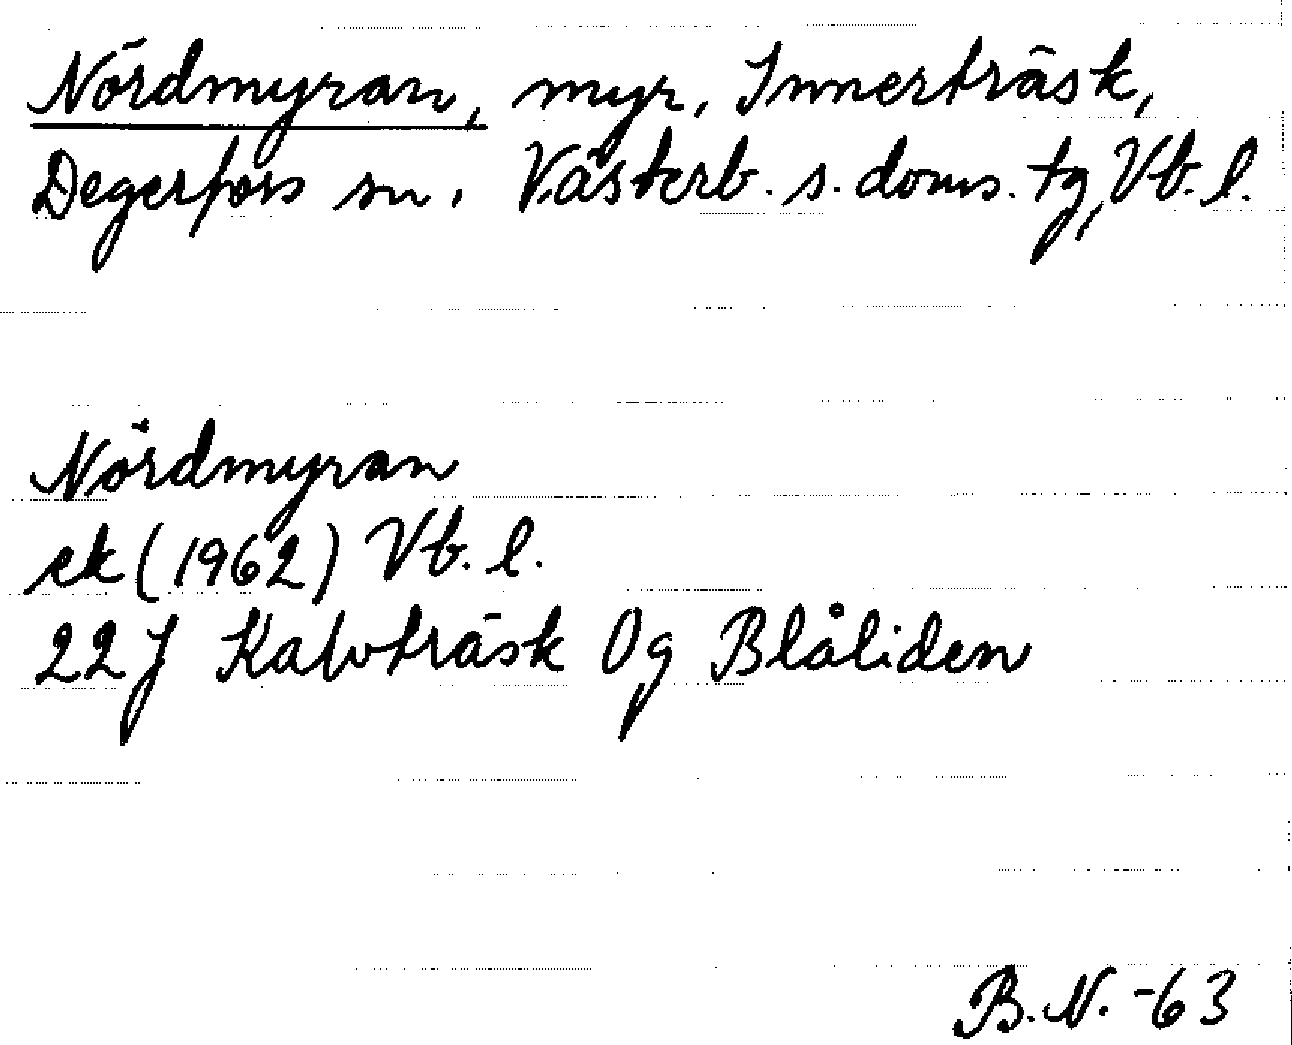 Nördmyran, myr, Innerträsk,
Degerfors sn. Västerb. s. doms. tg, Vb. l.
Nördmyran
ek (1962) Vb. l.
22J Kalvträsk 0g Blåliden
B.N. -63